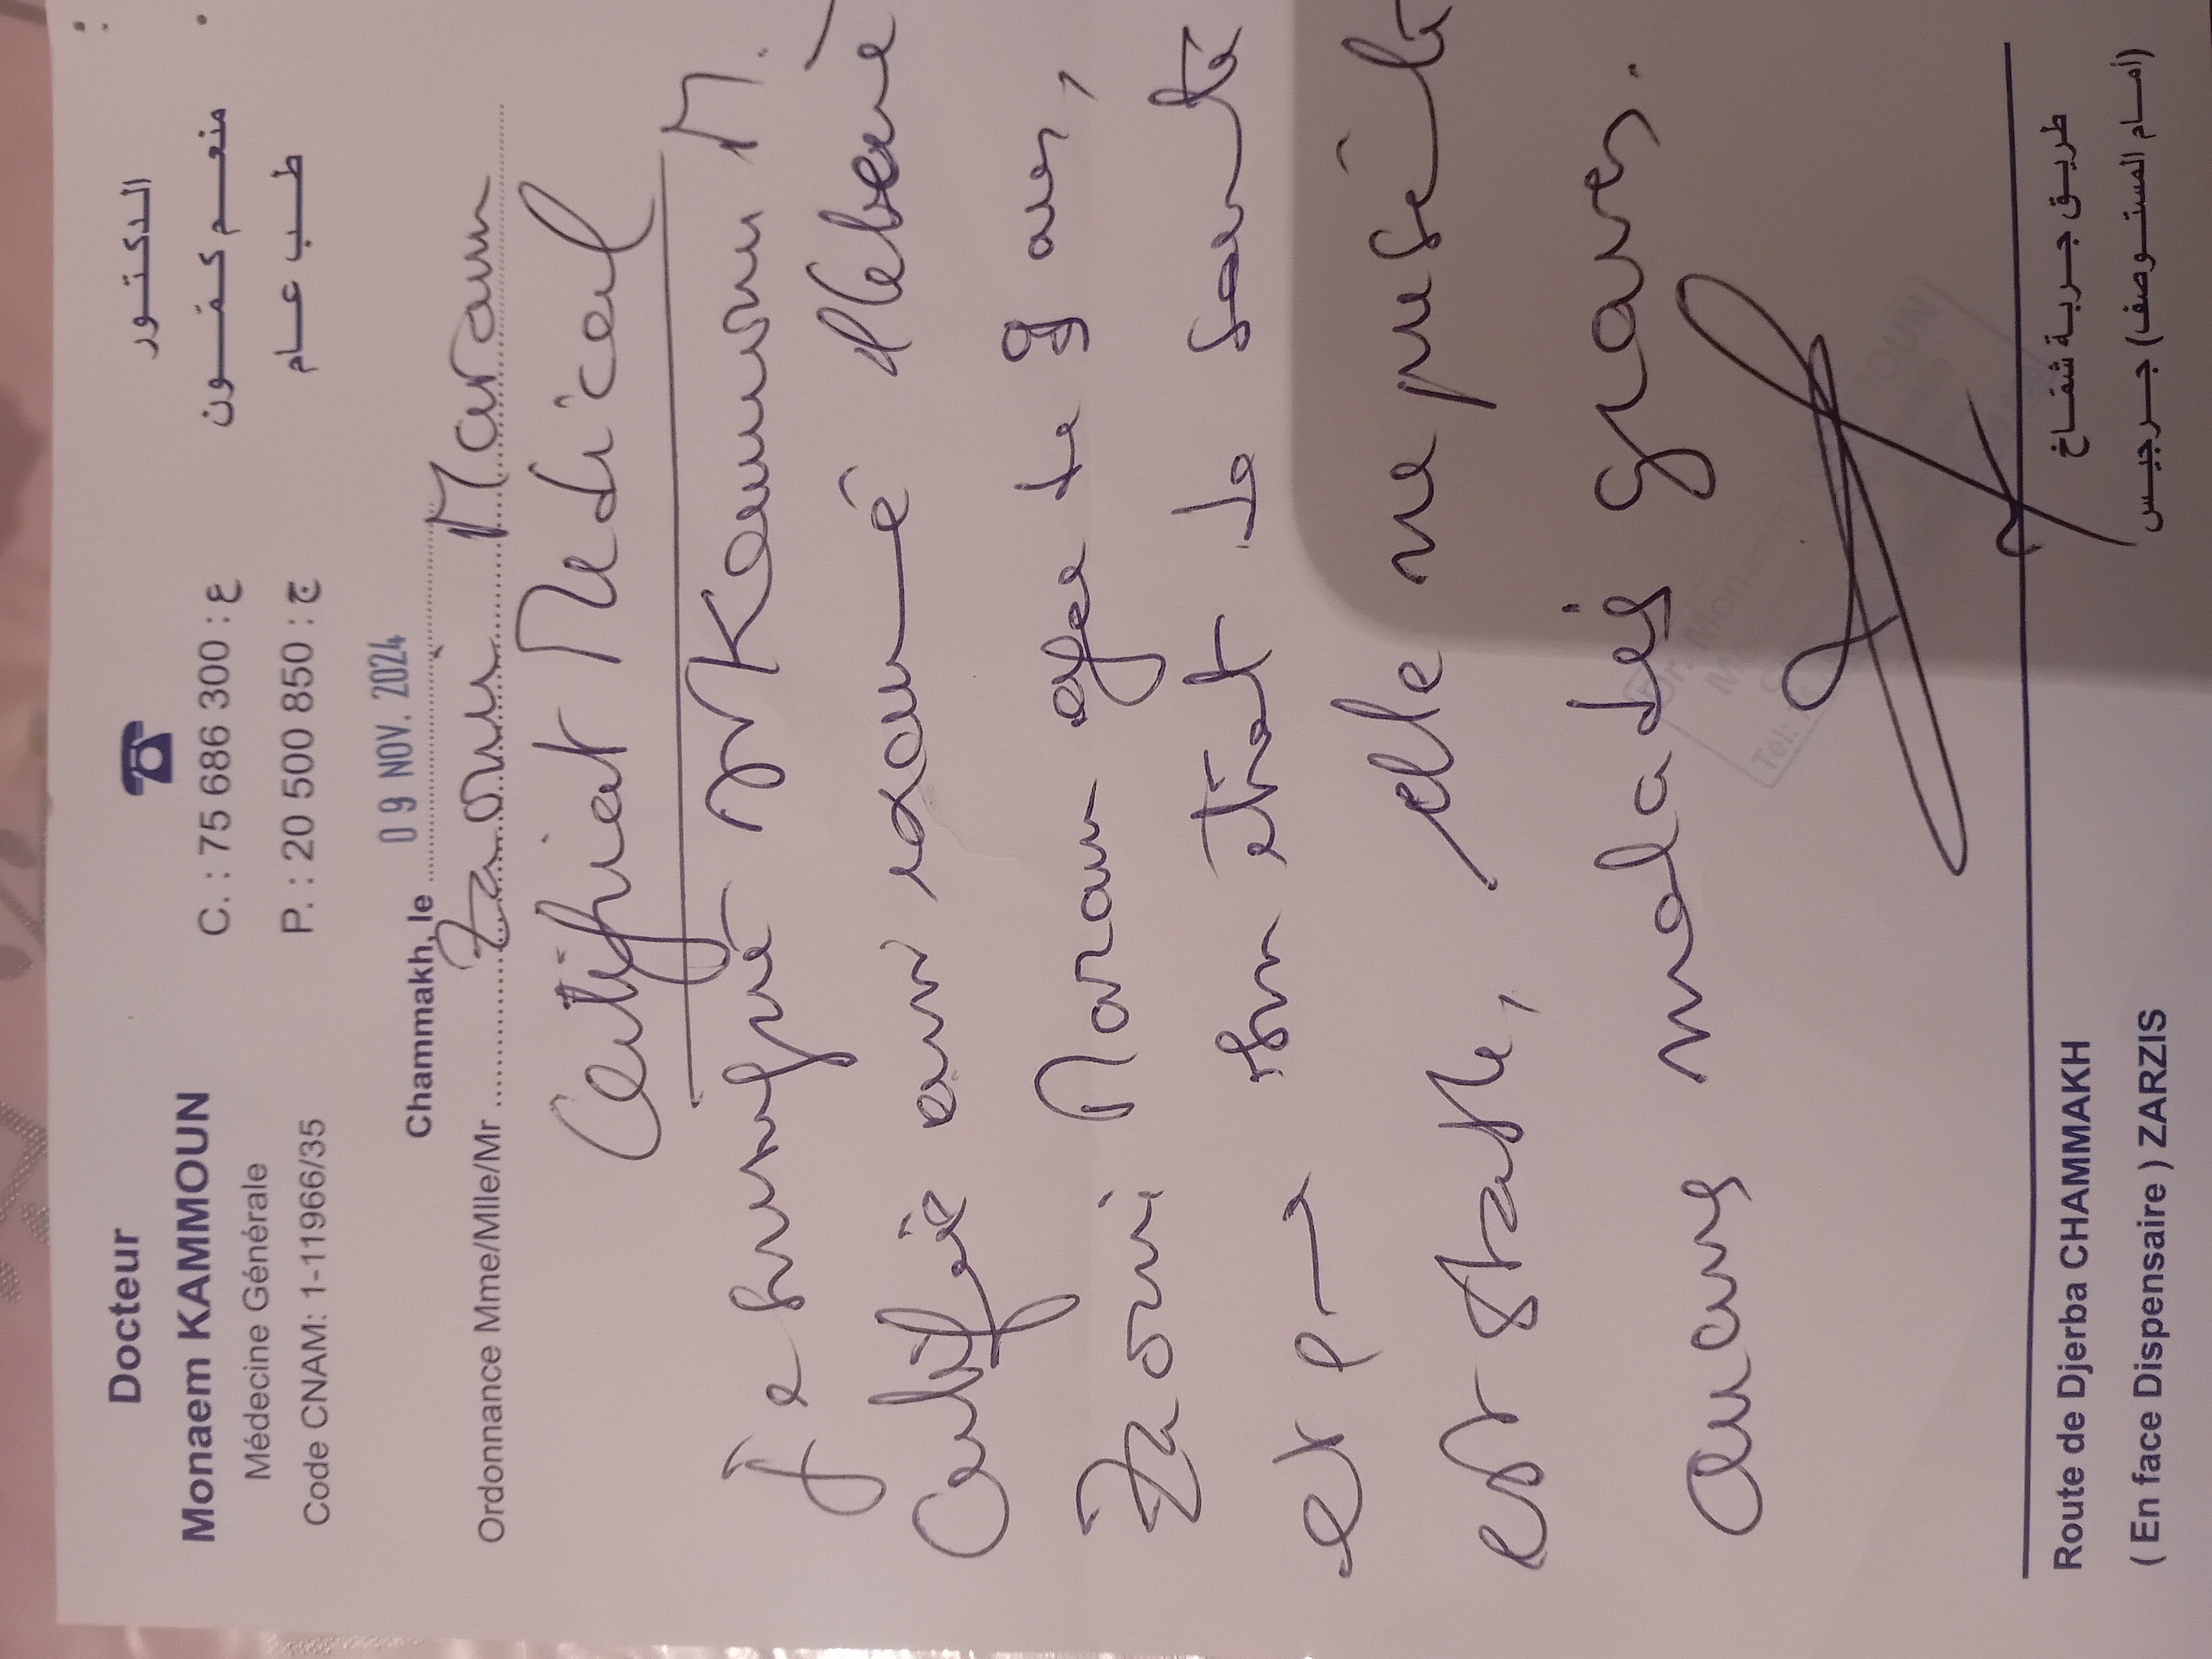 Docteur
Monaem KAMMOUN
Médecine Générale
Code CNAM: 1-11966/35
C. : 75 686 300 : ع
P. : 20 500 850 : ج
الدكتور
منعم كمون
طب عام
Chammakh, le 09 NOV. 2024
Ordonnance Mme/Mlle/Mr Zaoui Maram
Certificat Médical
Je soussigné Dr Kammoun M.
Certifie avoir examiné
Zaoui Maram agée de 9 ans,
et son état de santé
est stable, elle ne présente
aucune maladie grave.
Dr. Monaem K OUN
Tel: 75
Route de Djerba CHAMMAKH
( En face Dispensaire ) ZARZIS
طريق جربة شماخ
(أمام المستوصف) جرجيس